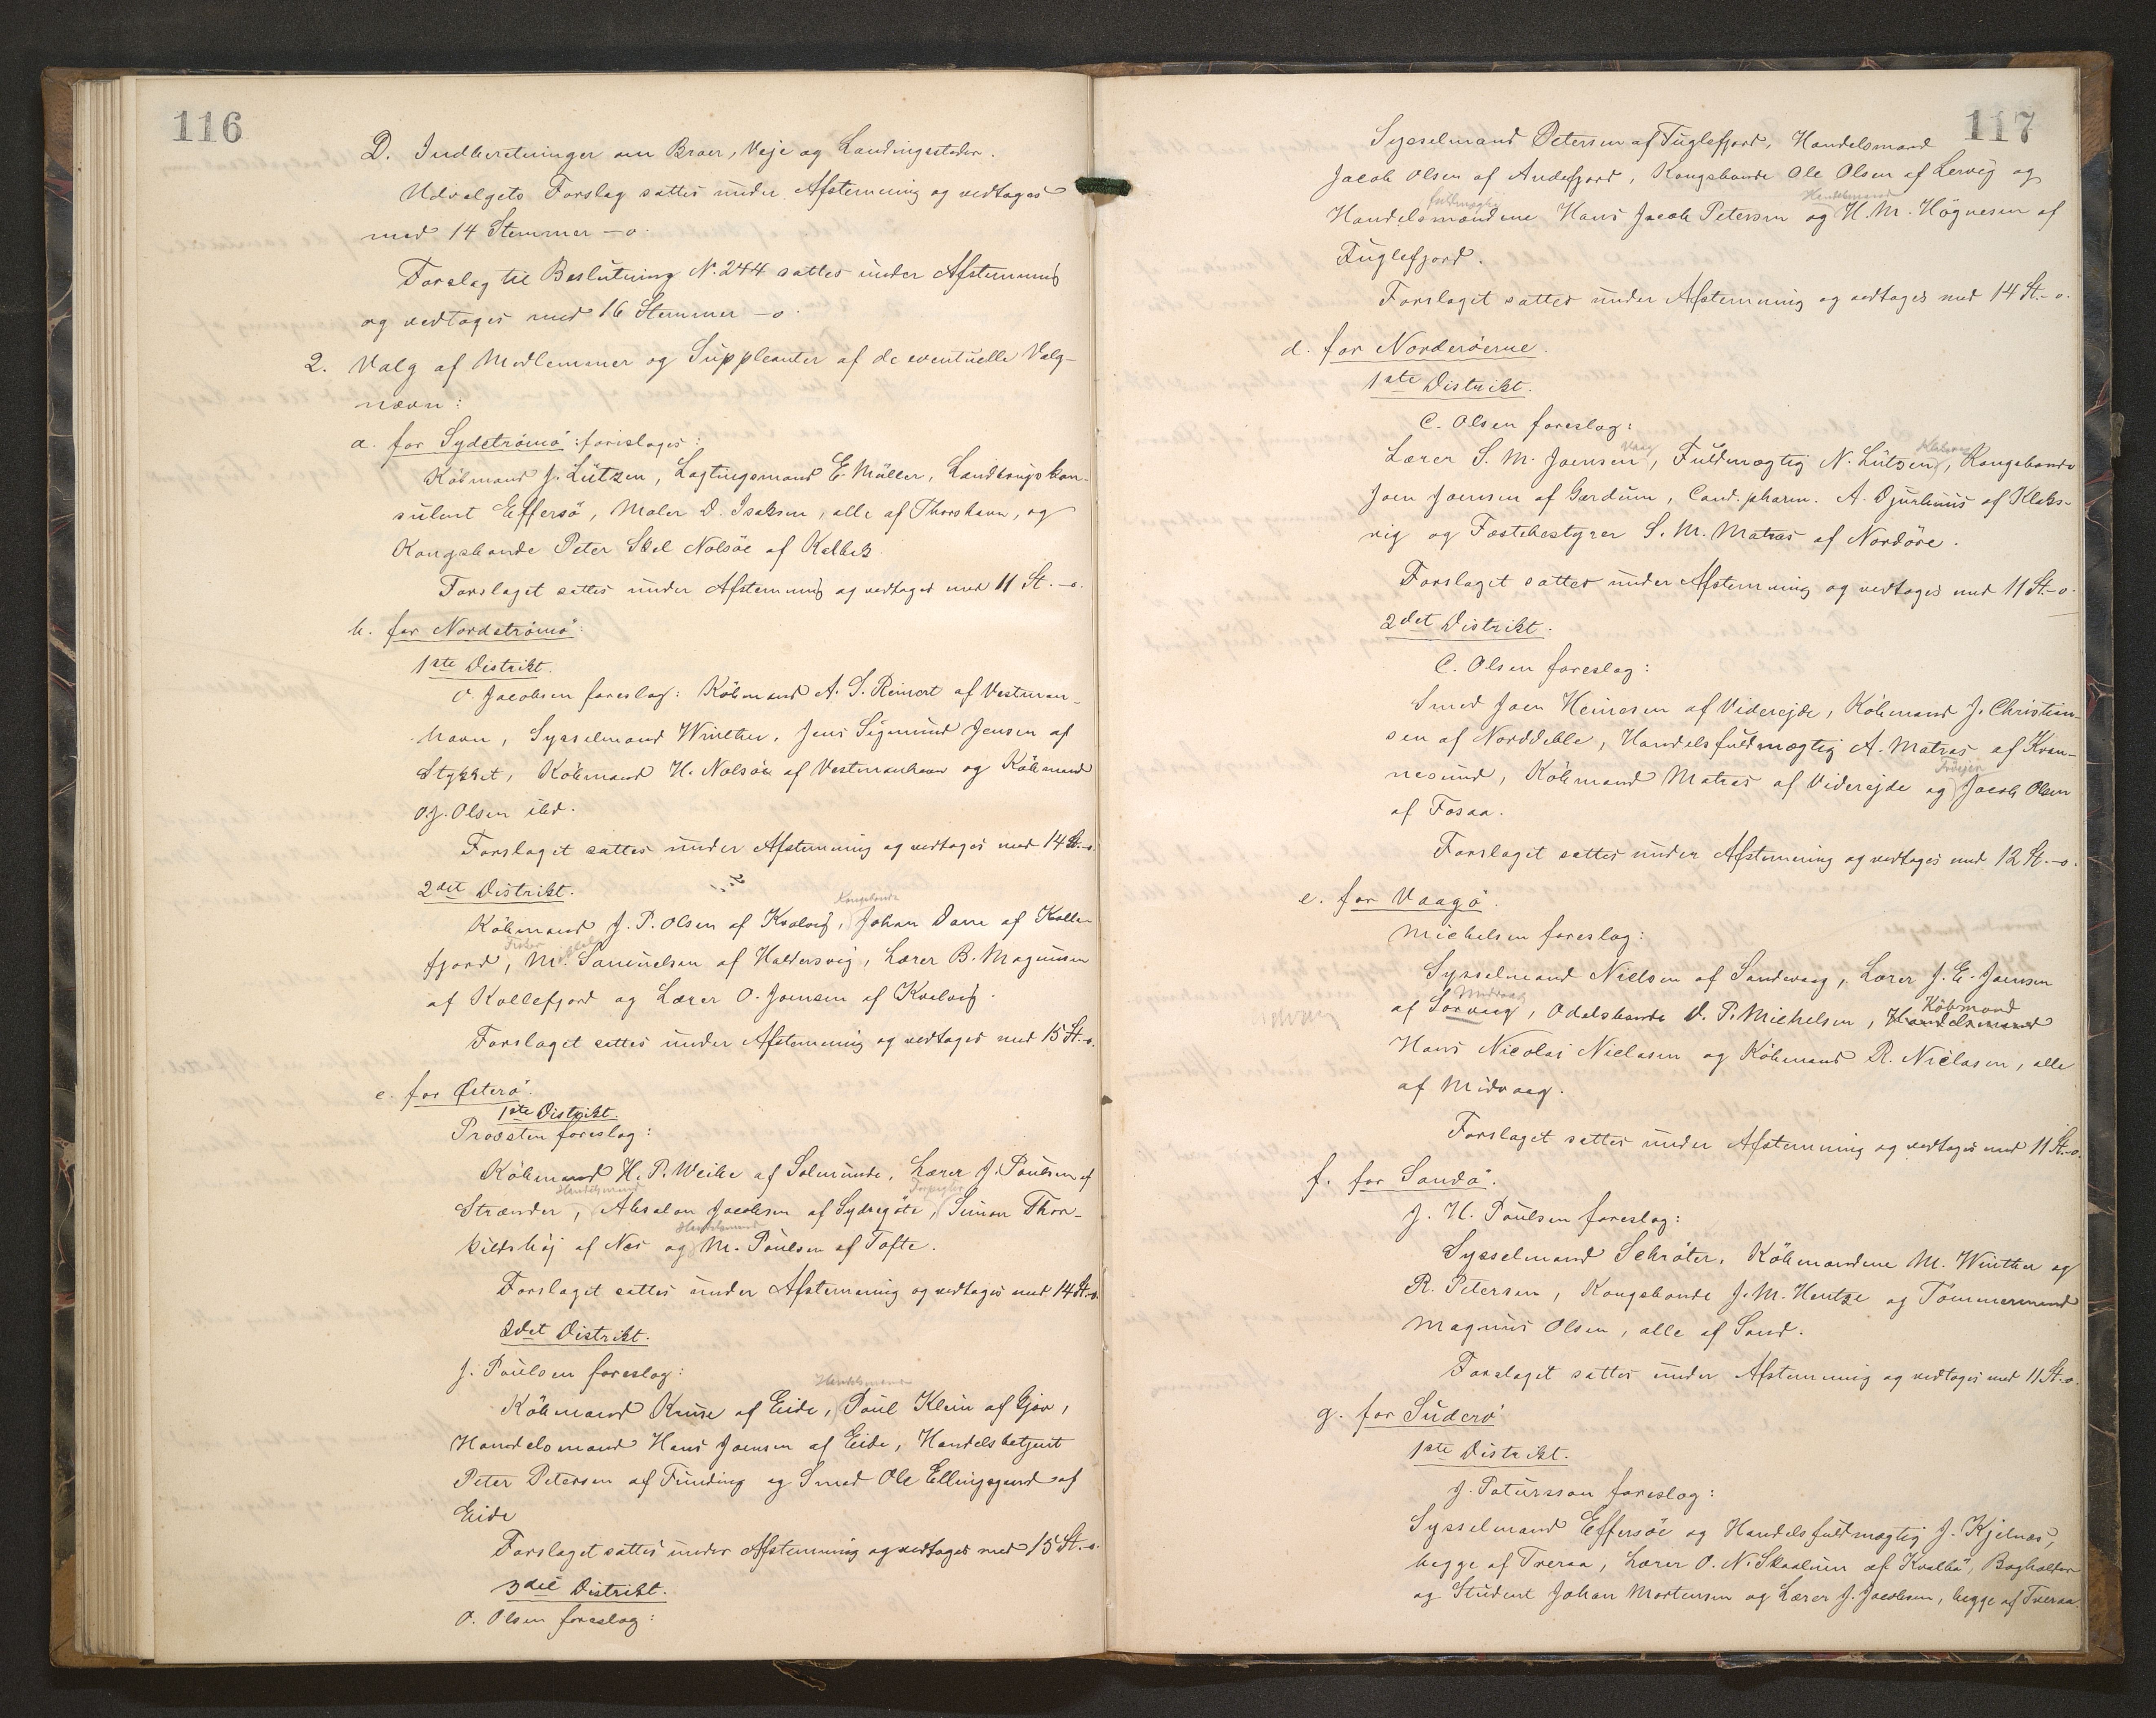 116
D. Indberetninger om Broer, Veje og Landingssteder.
Udvalgets Forslag sattes under Afstemning og vedtoges
med 14 Stemmer - o.
Forslag til Beslutning N. 244 sattes under Afstemning
og vedtoges med 16 Stemmer - o.
2. Valg af Medlemmer og Suppleanter af de eventuelle Valg-
nævn:
a. for Sydströmö: foreslages:
Köbmand J. Lützen, Lagtingsmand E. Müller, Landbrugskon-
sulent Effersö, Maler D. Isaksen, alle af Thorshavn, og
Kongsbonde Peter Skel Nolsöe af Kalbak
Forslaget sattes under Afstemning og vedtoges med 11 St. - o.
b. for Nordströmö:
1ste Distrikt.
O. Jacobsen foreslog: Köbmand A. S. Reinert af Vestman-
havn, Sysselmand Winther, Jens Sigmund Jensen af
Stykket, Köbmand H. Nolsöe af Vestmanhavn og Köbmand
O.J. Olsen ibd.
Forslaget sattes under Afstemning og vedtoges med 14 St. - o.
2det Distrikt.
Kongsbonde
Köbmand J. P. Olsen af Kvalvig, Johan Dam af Kolle-
Fisker
fjord, M. Samuelsen af Haldersvig, Lærer B. Magnussen
af Kollefjord og Lærer O. Joensen af Kvalvig.
Forslaget sattes under Afstemning og vedtoges med 15 St. - o.
c. for Österö.
1ste Distrikt.
Provsten foreslog:
Köbmand H. P. Weihe af Solmunde, Lærer J. Poulsen af
Handelsmand
Strænder, Absalon Jacobsen af Sydregöte, Simon Thor-
Handelsmand
kildshöj af Næs og M. Poulsen af Tofte.
Forslaget sattes under Afstemning og vedtoges med 14 St. - o.
2det Distrikt.
J. Poulsen foreslog:
Handelsmand
Köbmand Kruse af Eide, Poul Klein af Gjov,
Handelsmand Hans Joensen af Eide, Handelsbetjent
Peter Petersen af Funding og Smed Ole Ellingsgaard af
Eide
Forslaget sattes under Afstemning og vedtoges med 15 St. - o.
3die Distrikt.
O. Olsen foreslog:
117
Sysselmand Petersen af Fuglefjord, Handelsmand
Jacob Olsen af Andefjord, Kongsbonde Ole Olsen af Lervig og
fuldmægtig Handelsmand
Handelsmændene Hans Jacob Petersen og H. M. Högnesen af
Fuglefjord.
Forslaget sattes under Afstemning og vedtoges med 14 St. - o.
d. for Norderöerne.
1ste Distrikt.
C. Olsen foreslog:
Vaag Klaksvig
Lærer S. M. Joensen, Fuldmægtig N. Lützen, Kongsbonde
Joen Joensen af Gærdum, Cand. pharm. A. Djurhuus af Klaks-
vig og Fæstebestyrer S. M. Matras af Nordöre.
Forslaget sattes under Afstemning og vedtoges med 11 St. - o.
2det Distrikt.
C. Olsen foreslog:
Smed Joen Heinesen af Viderejde, Köbmand J. Christian-
sen af Norddeble, Handelsfuldmægtig A. Matras af Kvan-
nesund, Köbmand Matras af Viderejde og Jacob Olsen
af Fosaa.
Forslaget sattes under Afstemning og vedtoges med 12 St. - o.
e. for Vaagö.
Michelsen foreslog:
Sysselmand Nielsen af Sandevaag, Lærer J. E. Joensen
Midvaag Köbmand
af Sorvaag, Odelsbonde D. P. Michelsen, Handelsmand
Hans Nicolai Niclasen og Köbmand R. Niclasen, alle
af Midvaag.
Forslaget sattes under Afstemning og vedtoges med 11 St. - o.
f. for Sandö.
J. H. Poulsen foreslog:
Sysselmand Schröter, Köbmændene M. Winther og
R. Petersen, Kongsbonde J. M. Hentze og Tömmermand
Magnus Olsen, alle af Sand.
Forslaget sattes under Afstemning og vedtoges med 11 St. - o.
g. for Suderö
1ste Distrikt.
J. Patursson foreslog:
Sysselmand Effersöe og Handelsfuldmægtig J. Kjelnæs,
begge af Tveraa, Lærer O. N. Skaalum af Kvalbö, Bogholder
og Student Johan Mortensen og Lærer J. Jacobsen, begge af Tveraa